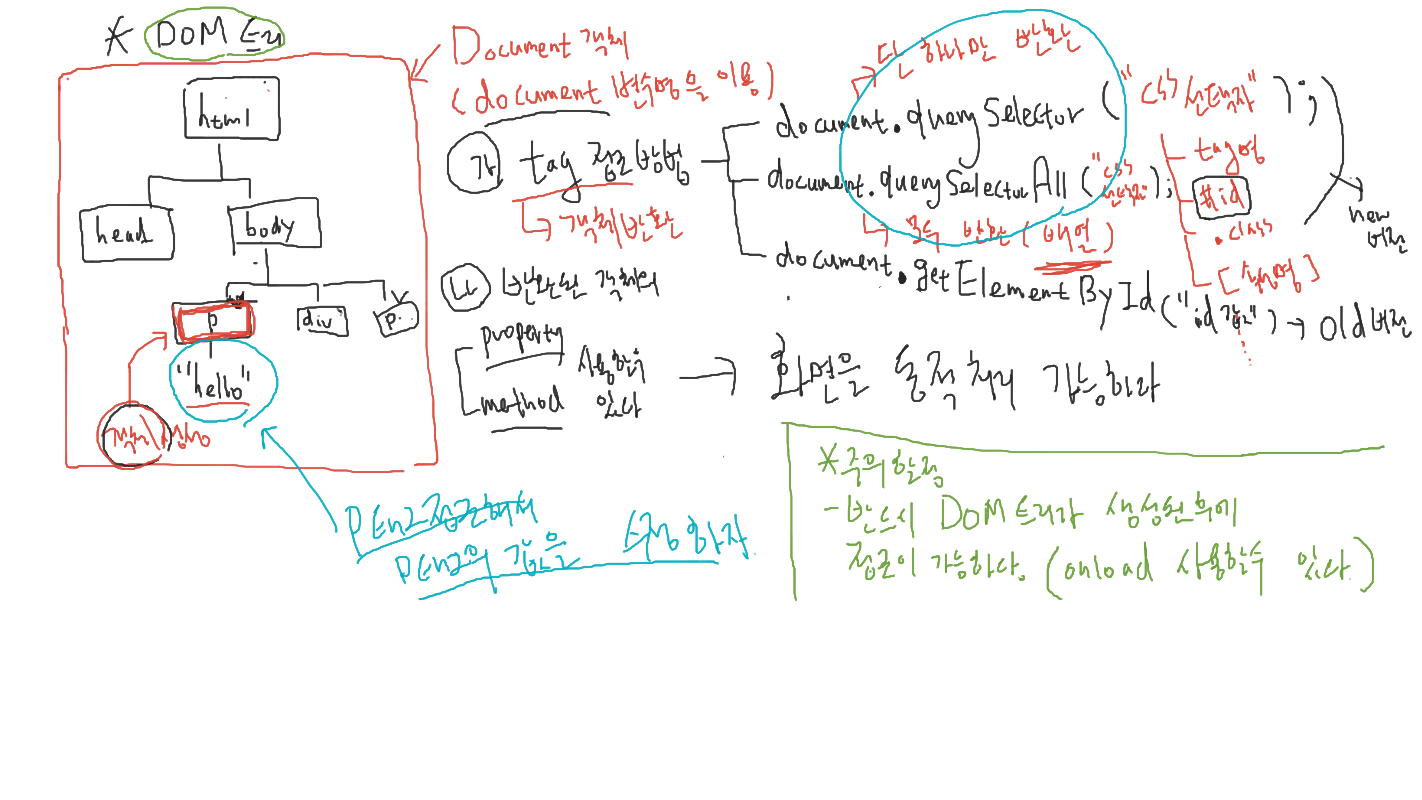 * DOM 트리
html
head
body
id
p
div
p
"hello"
Document 객체
(document 변수명을 이용)
가 tag 접근 방법
객체 반환
단 하나만 반환
document.querySelector("css 선택자");
document.querySelectorAll("css 선택자");
복수 반환 (배열)
document.getElementById("id값") → old 버전
tag명
#id
.class
[속성명]
new
버전
나 반환된 객체의
property
method
사용할 수
있다
화면을 동적 처리 가능하다
P 태그 접근해서
P 태그의 값을 수정하자
* 주의할 점
- 반드시 DOM 트리가 생성된 후에
접근이 가능하다. (onload 사용할 수 있다.)